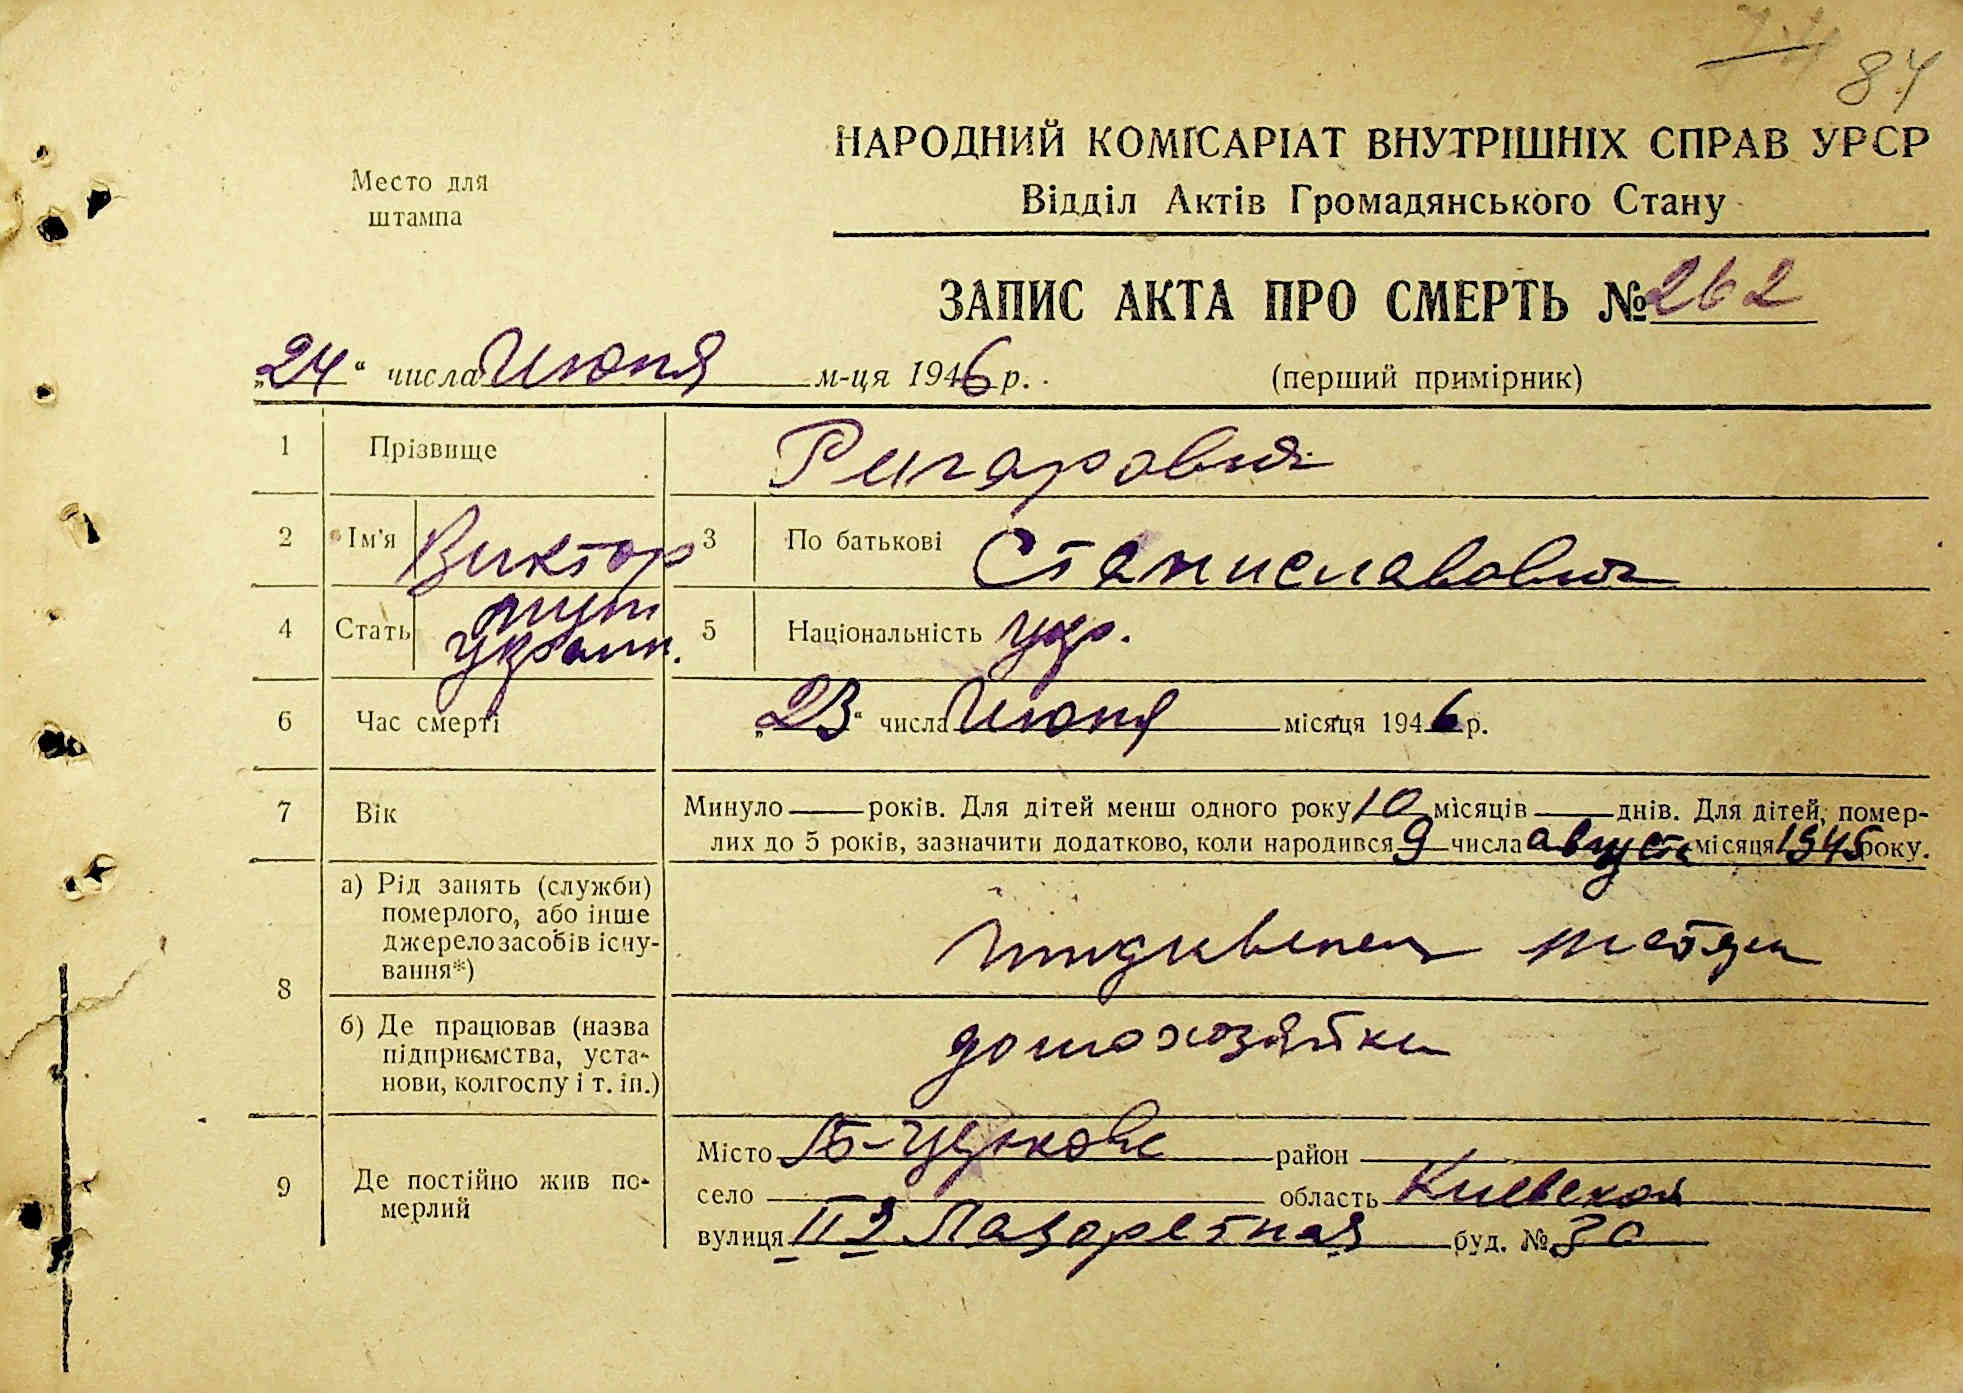 84
Место для
штампа
НАРОДНИЙ КОМІСАРІАТ ВНУТРІШНІХ СПРАВ УРСР
Відділ Актів Громадянського Стану
ЗАПИС АКТА ПРО СМЕРТЬ № 262
„24“ числа Июня м-ця 1946 р.
(перший примірник)
1 Прізвище
2 Ім'я Виктор 3 По батькові Станиславович
4 Стать муж 5 Національність укр.
украин.
6 Час смерті „23“ числа Июня місяця 1946 р.
7 Вік Минуло — років. Для дітей менш одного року 10 місяців — днів. Для дітей, помер-
лих до 5 років, зазначити додатково, коли народився 9 числа августа місяця 1945 року.
8 а) Рід занять (служби)
померлого, або інше
джерело засобів існу-
вання*)
иждивенец матери
б) Де працював (назва
підприємства, уста-
нови, колгоспу і т. ін.)
домохозяйки
9 Де постійно жив по-
мерлий
Місто Б-Церковь район
село область Киевской
вулиця II я Лазаретная буд. № 30